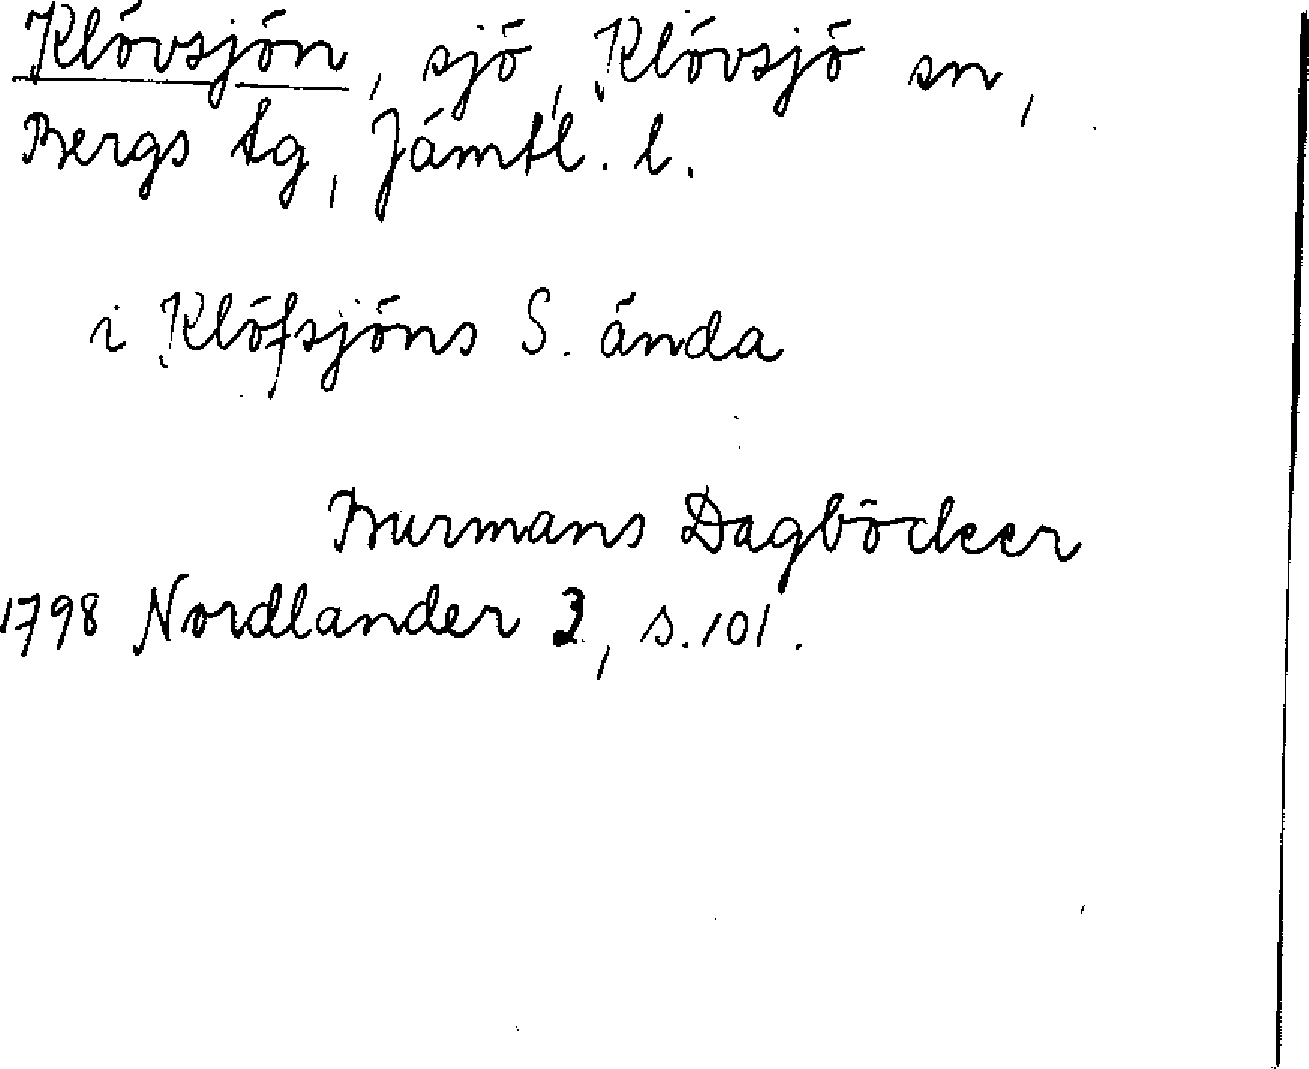 Klövsjön, sjö, Klövsjö sn,
Bergs tg, Jämtl. l.
i Klöfsjöns S. ända
Burmans Dagböcker
1798 Nordlander 3, s. 101.